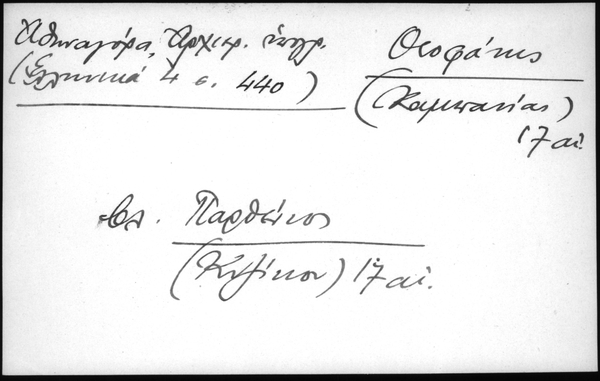 Ἀθηναγόρα, Ἀρχιερ. ὑπογρ.
(Ἑλληνικά 4 σ. 440)
Θεοφάνης
(Καμπανίας)
17 αἰ.
βλ. Παρθένιος
(Κυζίκου) 17 αἰ.